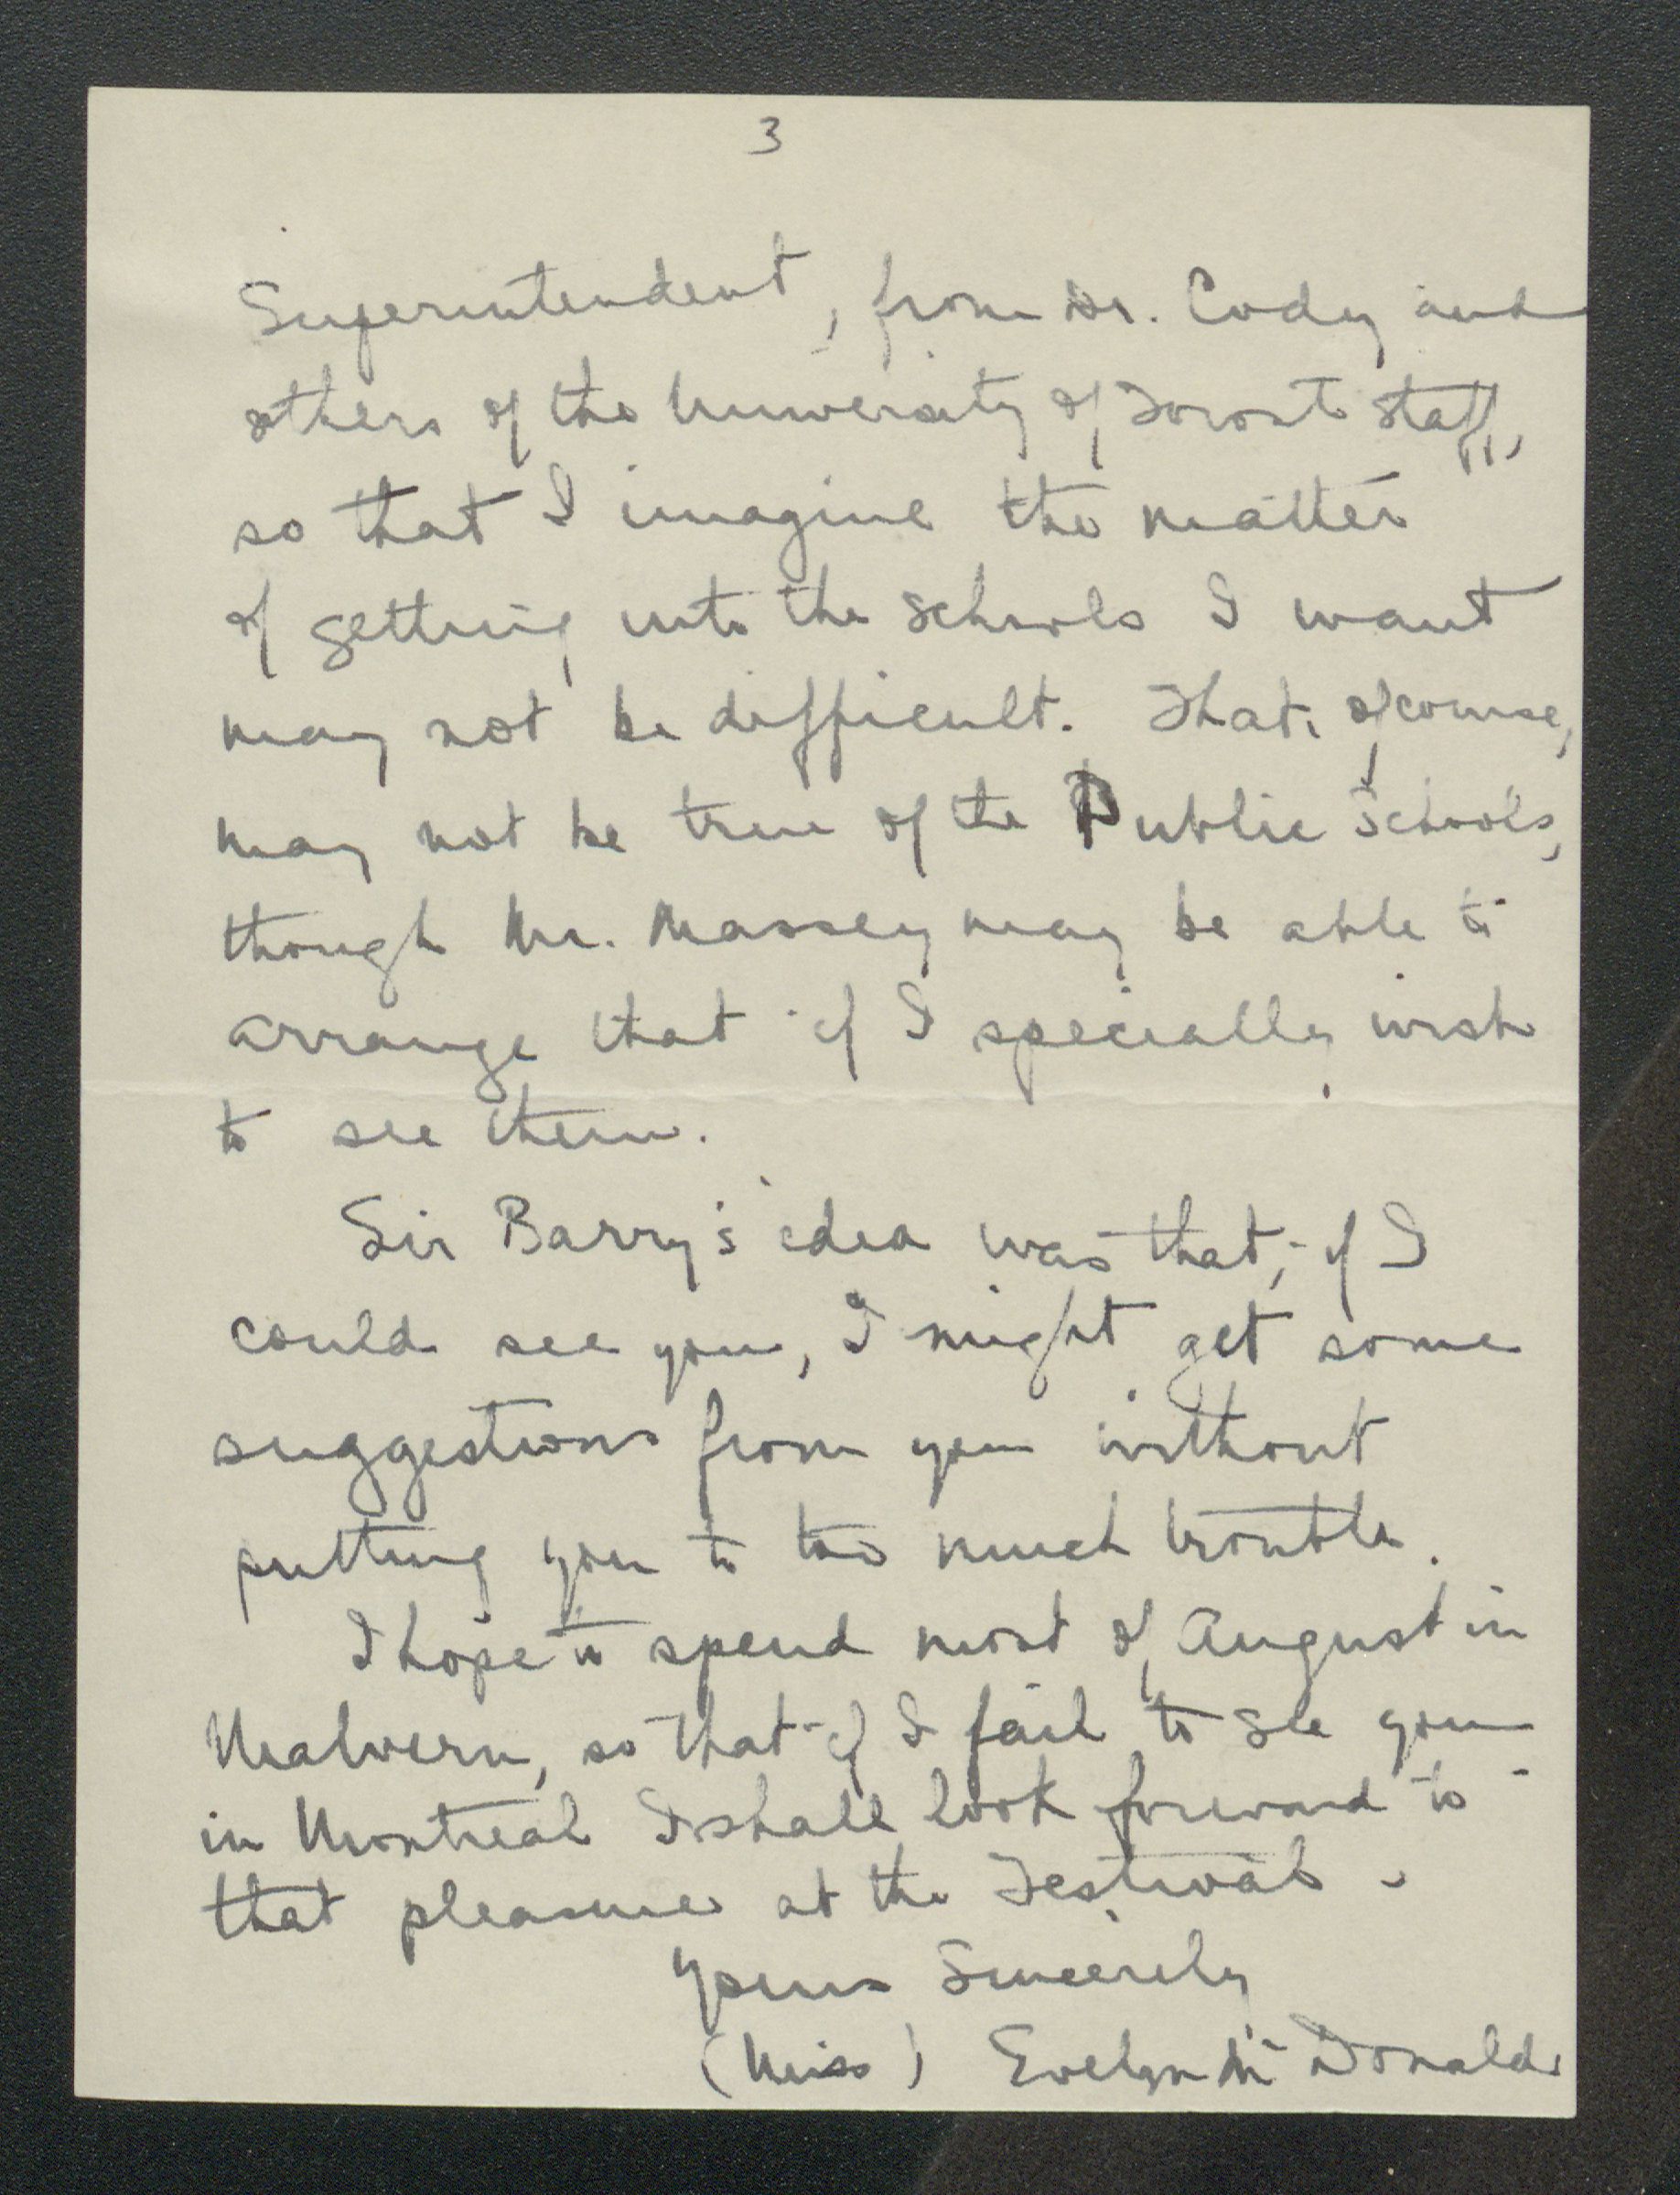 3
Superintendent, from Dr. Cody and
others of the University of Toronto staff,
so that I imagine the matter
of getting into the schools I want
may not be difficult. That, of course,
may not be true of the Public Schools,
though Mr. Massey may be able to
arrange that if I specially wish
to see them.
Sir Barry's idea was that, if I
could see you, I might get some
suggestions from you without
putting you to too much trouble.
I hope to spend most of August in
Malvern, so that if I fail to see you
in Montreal I shall look forward to
that pleasure at the Festival.
Yours Sincerely
(Miss) Evelyn Mc Donald